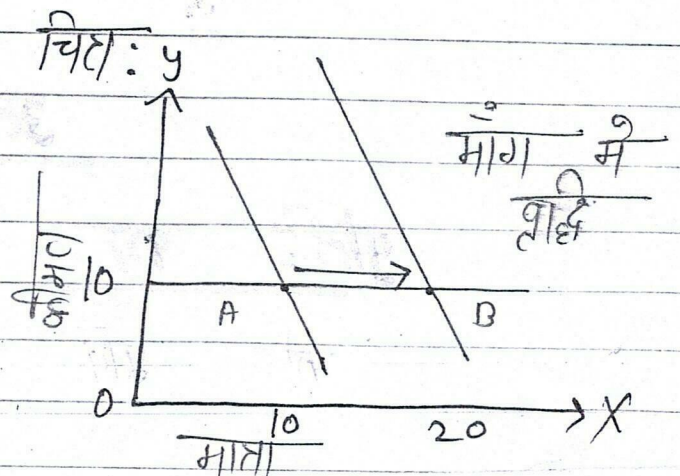 चित्र : y
मांग में
वृद्धि
कीमत
10
A
B
0
10
20
X
मात्रा